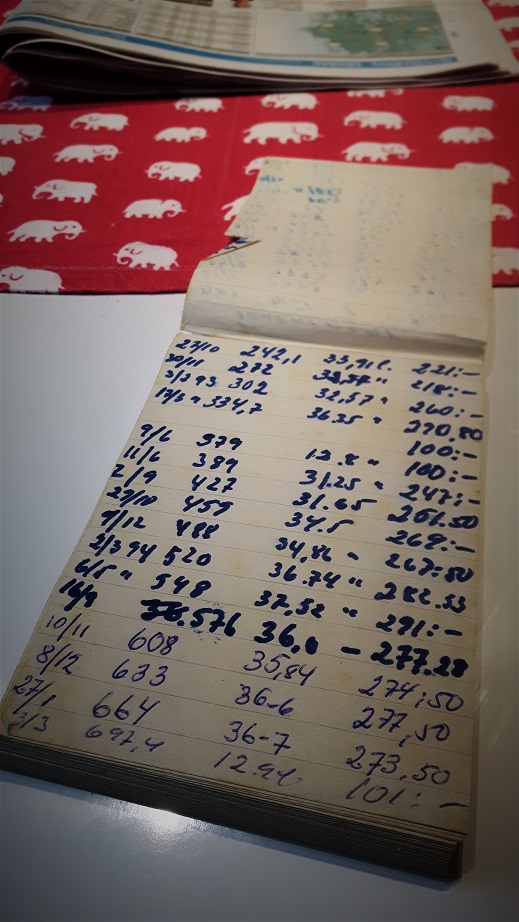 27/10 242,1 33,91 l. 221:-
30/11 272 32,57 " 218:-
3/3 93 302 32,57 " 260:-
13/3 " 334,7 36.35 " 290,80
100:-
9/6 379 13.8 " 100:-
11/6 389 31.25 " 247:-
2/9 427 31.65 251.50
29/10 459 34.5 269:-
9/12 488 34,86 - 267:50
2/3 94 520 36.74 " 282.53
6/5 " 548 37,52 " 291:-
16/9 576 36,0 - 277.28
10/11 608 35,84 274,50
8/12 633 36-6 277,50
27/1 664 36-7 273,50
3/3 697,4 12.94 101:-